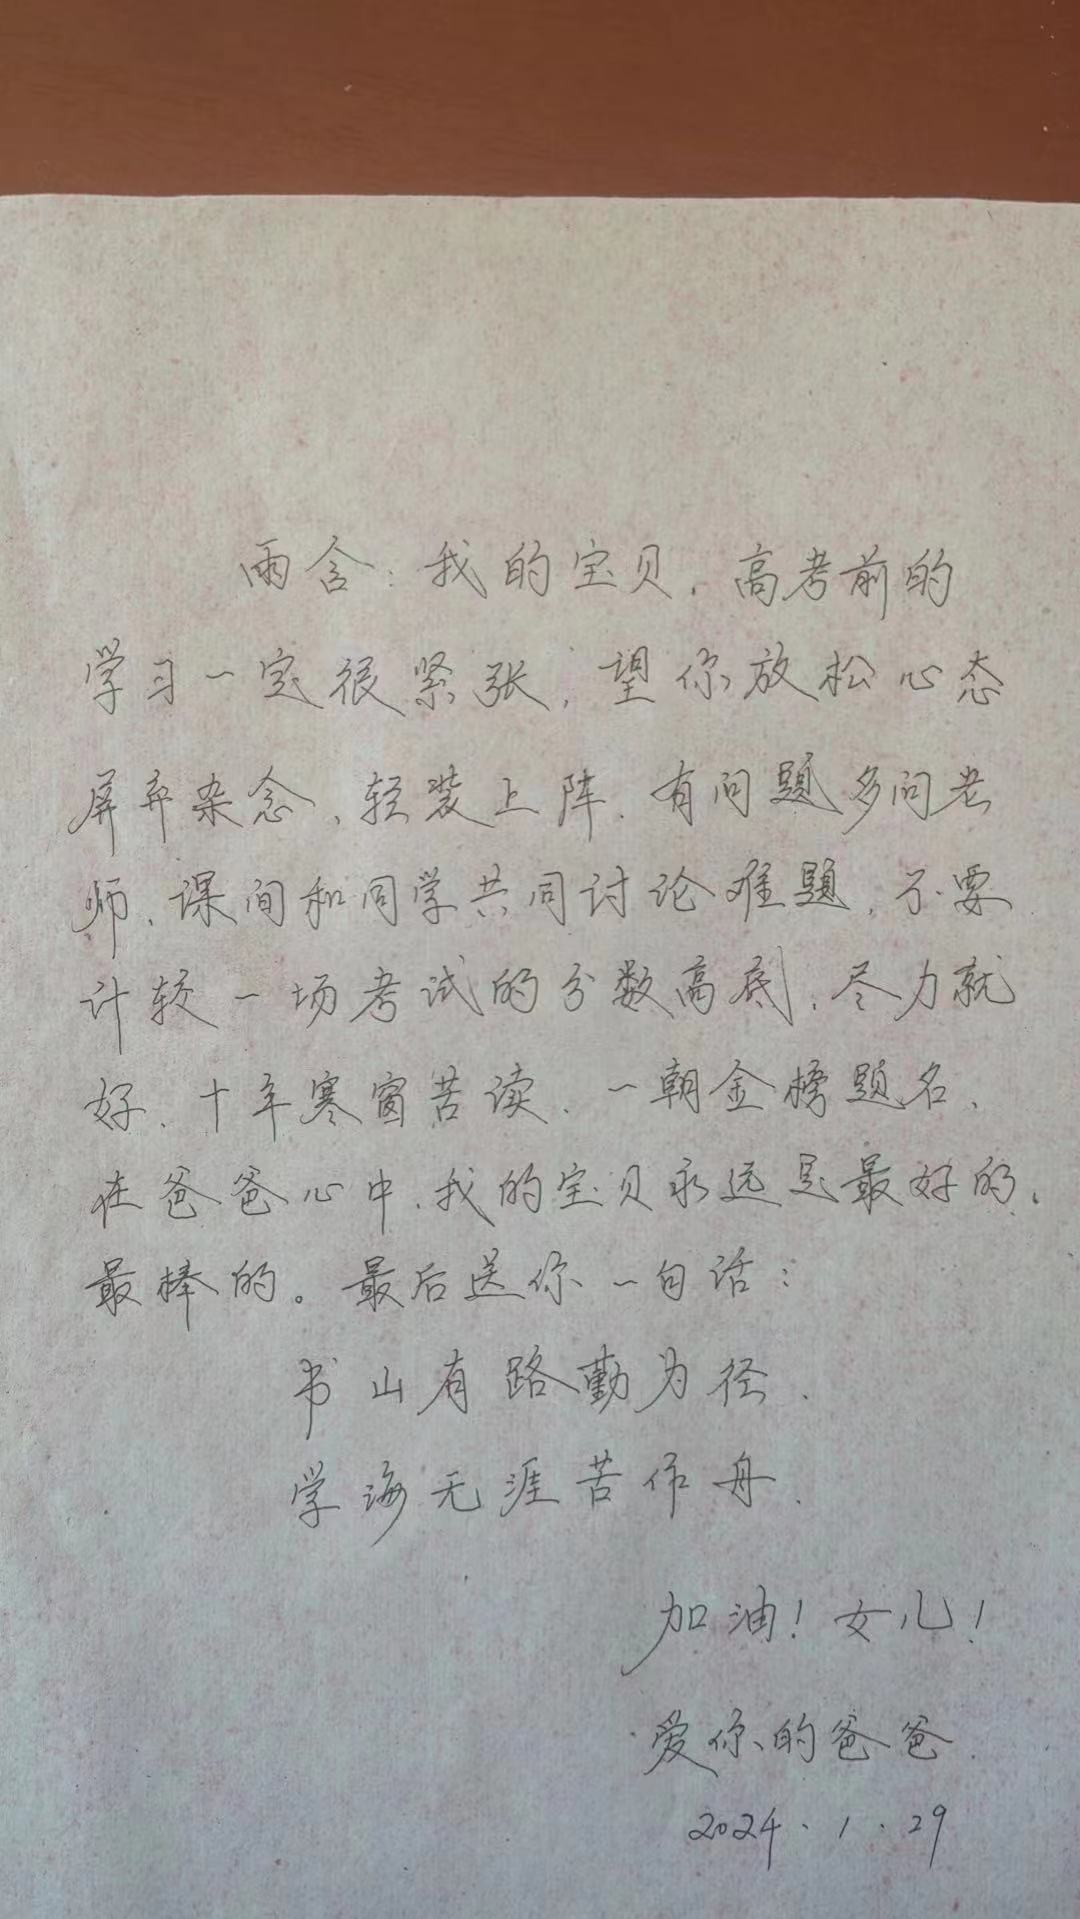 雨含：我的宝贝，高考前的
学习一定很紧张，望你放松心态
屏弃杂念、轻装上阵．有问题多问老
师、课间和同学共同讨论难题，不要
计较一场考试的分数高底，尽力就
好、十年寒窗苦读、一朝金榜题名、
在爸爸心中，我的宝贝永远是最好的、
最棒的。最后送你一句话：
书山有路勤为径．
学海无涯苦作舟．
加油！女儿！
爱你的爸爸．
2024．1．29